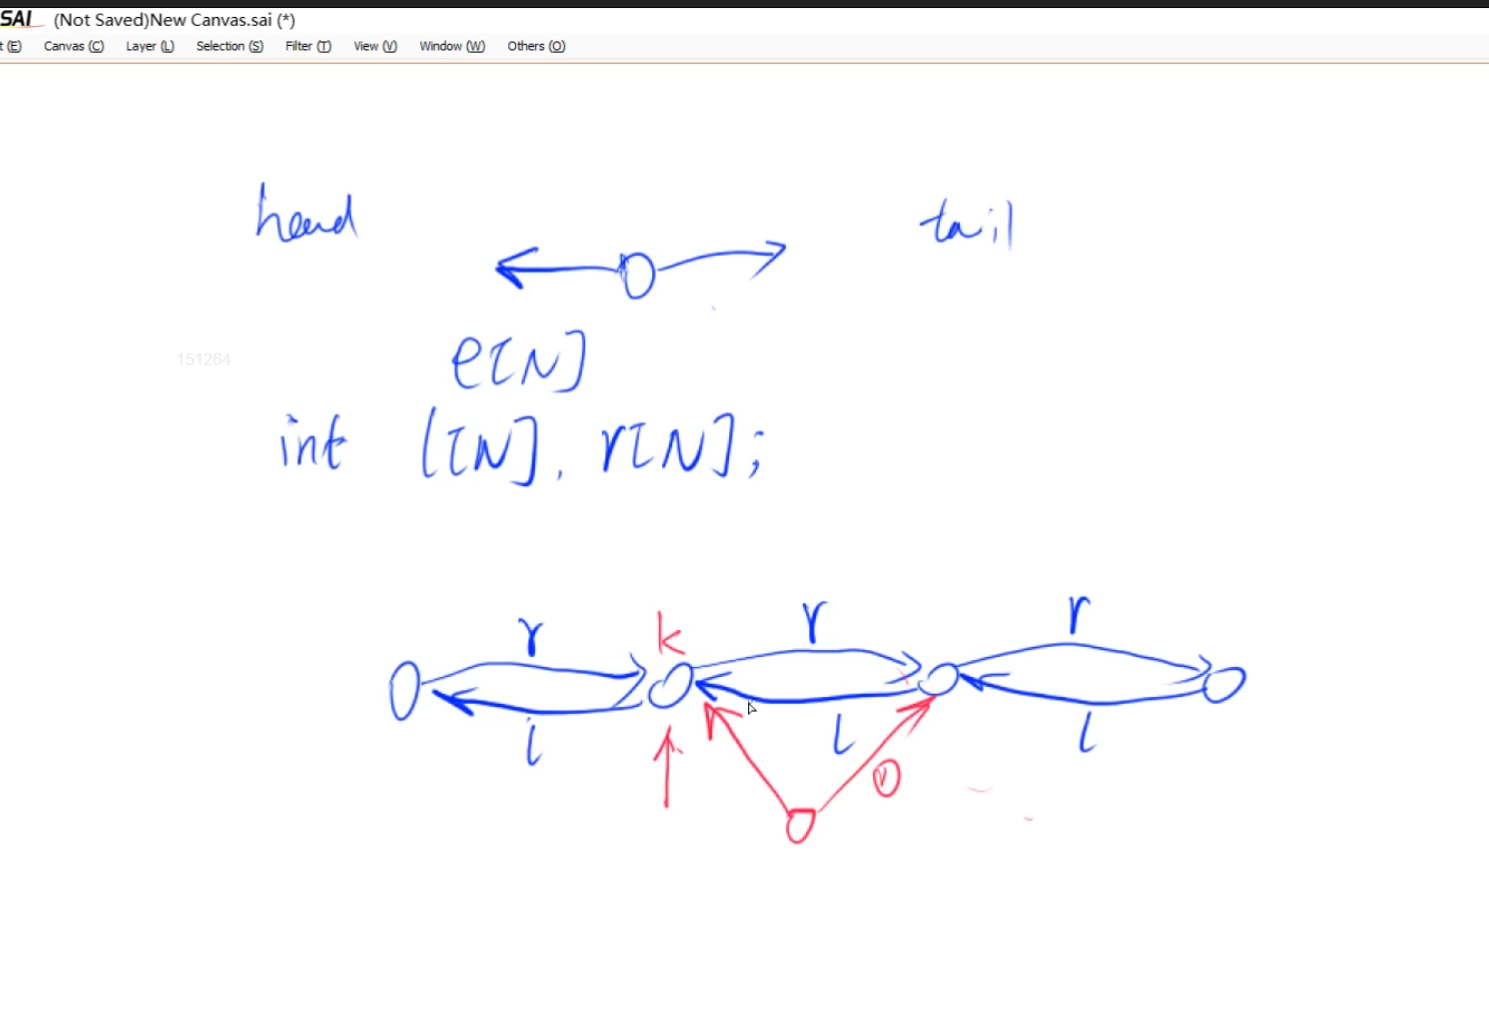 SAI (Not Saved)New Canvas.sai (*)
t (E) Canvas (C) Layer (L) Selection (S) Filter (T) View (V) Window (W) Others (O)
head tail
151264
e[N]
int l[N], r[N];
r k r r
l l l
①